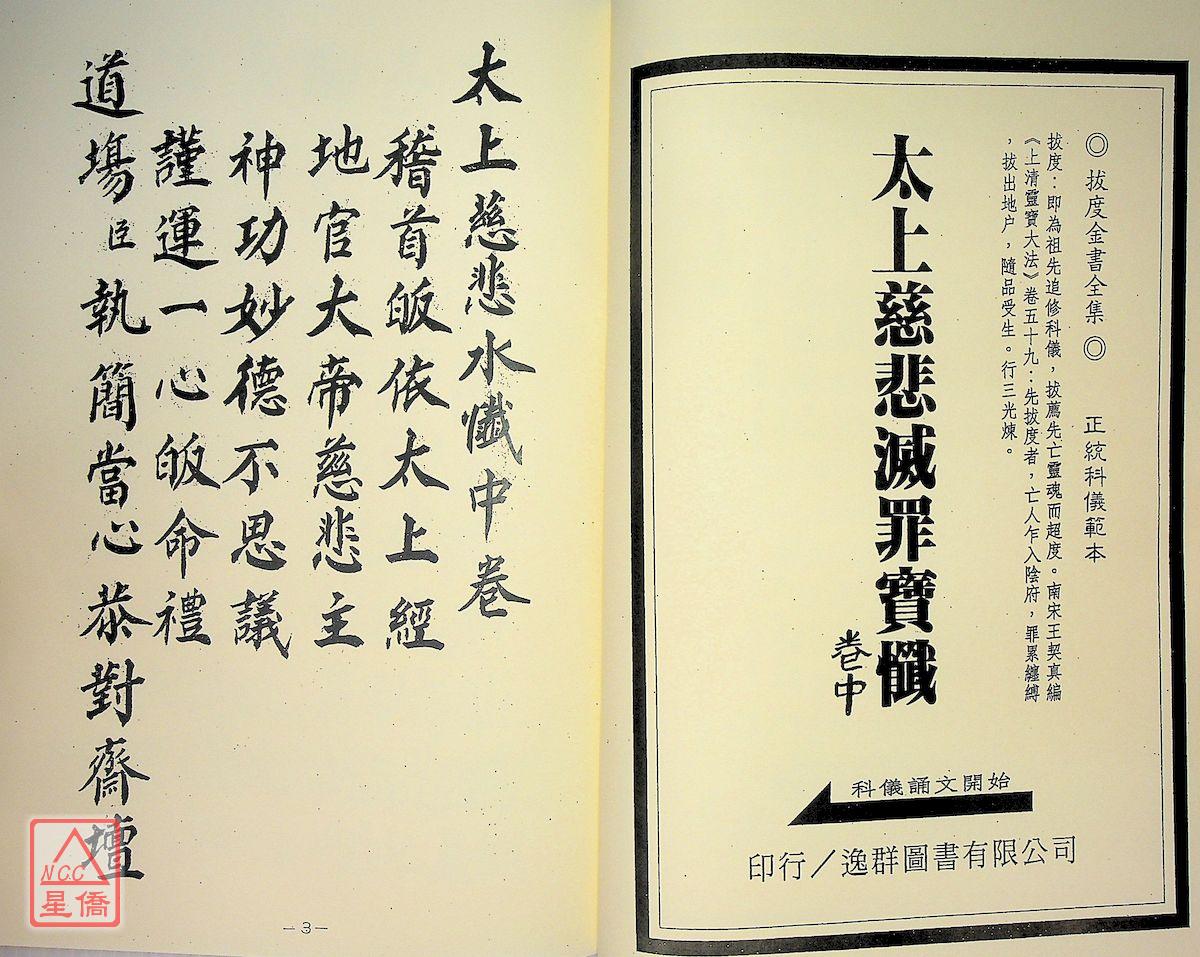 ◎拔度金書全集◎　正統科儀範本
拔度：即為祖先追修科儀，拔薦先亡靈魂而超度。南宋王契真編
《上清靈寶大法》卷五十九：先拔度者，亡人乍入陰府，罪累纏縛
，拔出地户，隨品受生。行三光煉。
太上慈悲滅罪寶懺
卷中
科儀誦文開始
印行／逸群圖書有限公司
太上慈悲水懺中卷
稽首皈依太上經
地官大帝慈悲主
神功妙德不思議
謹運一心皈命禮
道場臣執簡當心恭對齋壇
—3—
NCC
星僑